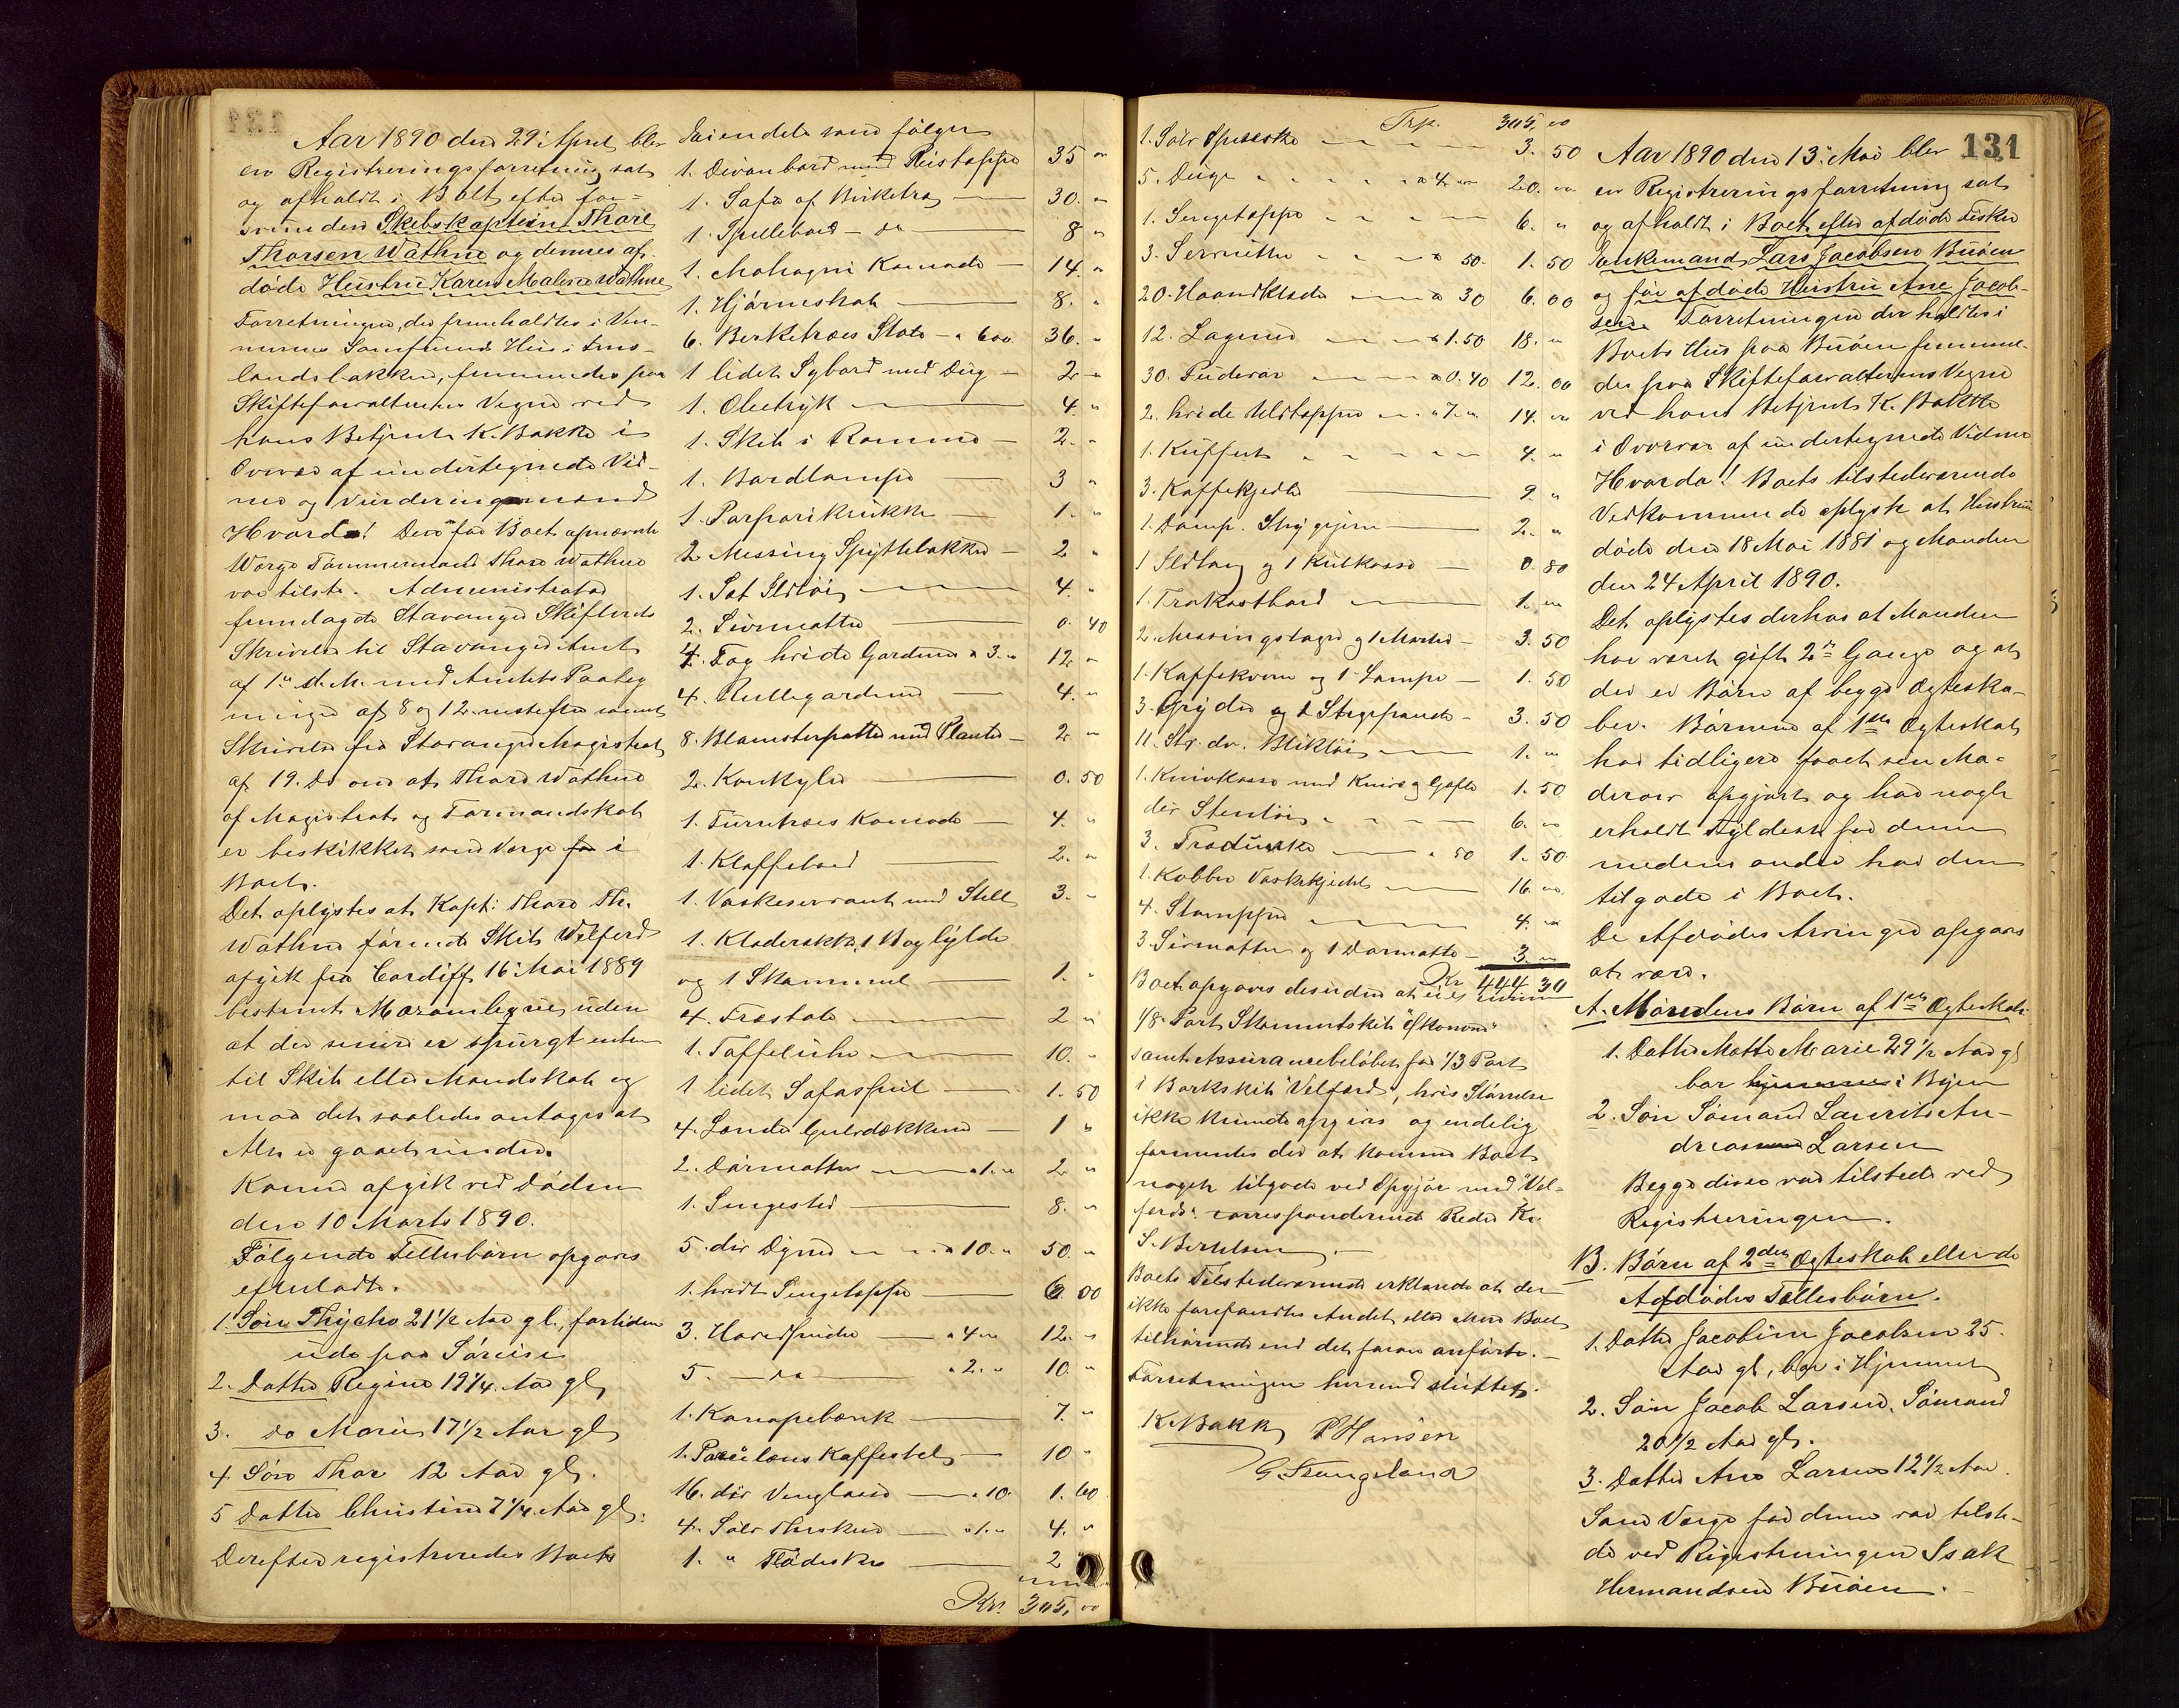 Aar 1890 den 29' April blev
en Registreringsforretning sat
og afholdt i Boet efter for=
svunden Skibskaptein Thore
Thorsen Wathne og dennes af-
døde Hustru Karen Malene Wathne
Forretningen, der fremholdtes i Ven-
nernes Samfunds Hus i
landsbakken, fremmedes paa
Skifteforvalterens Vegne ved
hans Betjent K. Bakke i
Overvær af undertegnede Vid-
ner og Vurderingsmænd
Hvorda! Den for Boet opnævnte
Værge Tømmermand Thore Wathne
var tilste. Administrator
fremlagde Stavanger Skifterets
Skrivelse til Stavanger Amt
af 1ste d. M. med Amtets Paateg
ninger af 8 og 12 næstefter samt
Skrivelse fra Stavanger Magistrat
af 19. Do om at Thore Wathne
af Magistrat og Formandskab
er beskikket som Værge for i
Boet.
Det oplystes at Kapt: Thore Th.
Wathne førende Skib Velferd
afgik fra Cardiff 16' Mai 1889
bestemt uden
at der senere er spurgt enten
til Skib eller Mandskab og
maa det saaledes antages at
Alt er gaaet under.
Konen afgik ved Døden
den 10 Marts 1890.
Følgende Fellesbørn opgaves
efterladte.
1. Søn Thycho 21 1/2 Aar gl., fortiden
ude paa Søreise
2. Datter Regine 19 1/4 Aar gl,
3. do Marie 17 1/2 Aar gl
4 Søn Thor 12 Aar gl.
5 Datter Christine 7 1/4 Aar gl.
Derefter registreredes Boets
Eiendele som følger
1. Divanbord med Reistæppe 35 "
1. Sofa af Birketræ 30. "
1. Spillebord - do 8 "
1. Mahogni Komode 14. "
1. Hjørneskab 8. "
6. Berketræes Stole - a 600 36. "
1 lidet Sybord med Dug 2 "
1. Olietryk 4. "
1. Skib i Ramme 2. "
1. Bordlampe 3 "
1. Porsorikrukke 1. "
2 Messing Spyttebakker 2 "
1. Sæt Ildtøi 4. "
2. Sivmatter 0. 40
4. Fag hvide Gardiner a 3. " 12 "
4. Rullegardiner 4. "
8. Blomsterpotter med Planter 2 "
2. Konkylier 0. 50
1. Furutræes Komode 4. "
1. Klaffebord 2. "
1. Vaskeservant med Stell 3. "
1. Kloderække, 1 Boghylde
og 1 Skammel 1. "
4. Træstole 2 "
1. Taffeluhr 10. "
1 lidet Sofaspeil 1. 50
4. Lænde Gulvdækkener 1 "
2. Dørmatter a 1. " 2 "
1. Sengested 8. "
5. div Dyner a 10. " 50. "
1. hvidt Sengetæppe 6 00
3. Hovedpuder a 4 " 12. "
5. - do - a 2. " 10. "
1. Kanapebænk 7. "
1. Porcelæns Kaffestel 10 "
16. div Vinglas a 10. 1. 60
4. Sølv Theskeer a 1. " 4. "
1. " Flødeske 2
Kr. 305, 00
Trp. 305, 00
1. Sølv Spiseske 3. 50
5. Duge a 4 " 20. "
1. Sengetæppe 6. "
3. Servietter a 50. 1. 50
20. Haandklæde a 30 6. 00
12. Lagener a 1.50 18. "
30. Pudevar a 0.40 12. 00
2. hvide Uldtæpper a 7. " 14. "
1. Kuffert 4. "
3. Kaffekjedle 9. "
1. Damp. Strygejern 2. "
1 Ildtang og 1 Kulkasse 0. 80
1. Trakostbord 1. "
2. Messingstager og 1 Morter 3. 50
1. Kaffekvern og 1 Lampe 1. 50
3. Gryder og 2 Stegepande 3. 50
11. Str. dv. Bliktøi 1. "
1. Knivkasse med Knive og Gafle 1. 50
div Stentøi 6. "
3. Tra a 50 1. 50
1. Kobber Vaskekjedel 16. "
4. Stampper 4. "
3. Sivmatter og 1 Dørmatte 3. "
Kr 444 30
Boet opgaves desuden at eie
1/8 Part Skonnertskib "Økonom"
samt Assurancebeløbet for 1/3 Part
i Barkskib "Velferd", hvis Størrelse
ikke kunde opgives og endelig
formentes der at komme Boet
noget tilgode ved Opgjør med "Vel-
ferds" corresponderende Reder Kr.
S. Bertelsen.
Boets Tilstedeværende erklærede at der
ikke forefandtes Andet eller Mere Boet
tilhørende end det foran anførte.
Forretningen hermed sluttet.
K. Bakke P Hansen
G. Trangsland
131
Aar 1890 den 13' Mai blev
en Registreringsforretning sat
og afholdt i Boet efter afdøde Fisker
Enkemand Lars Jacobsen Buøen
og før afdøde Hustru Ane Jacob-
sen. Forretningen der holdtes i
Boets Hus paa Buøen fremme-
des paa Skifteforvalterens Vegne
ved hans Betjent K. Bakke
i Overvær af undertegnede Vidner
Hvorda! Boets tilstedeværende
Vedkommende oplyste at Hustruen
døde den 18 Mai 1881 og Manden
den 24 April 1890.
Det oplystes derhos at Manden
har været gift 2de Gange og at
der er Børn af begge Ægteska-
ber. Børnene af 1ste Ægteskab
har tidligere faaet sin Mø-
drearv opgjort og har nogle
erholdt Fyldest for den
medens andre har den
tilgode i Boet.
De Afdødes Arvinger opgaves
at være.
A. Mandens Børn af 1ste Ægteskab
1. Datter Mette Marie 29 1/2 Aar gl
bor i Byen
2. Søn Sømand Laurits An-
dreas Larsen
Begge disse var tilstede ved
Registreringen.
B. Børn af 2det Ægteskab eller de
Afdødes Fellesbørn.
1. Datter Jacobine Jacobsen 25.
Aar gl, bor i Hjemmet
2. Søn Jacob Larsen, Sømand
20 1/2 Aar gl.
3. Datter Ane Larsen 12 1/2 Aar.
Som Værge for denne var tilste-
de ved Registreringen Isak
Hermandsen Buøen.